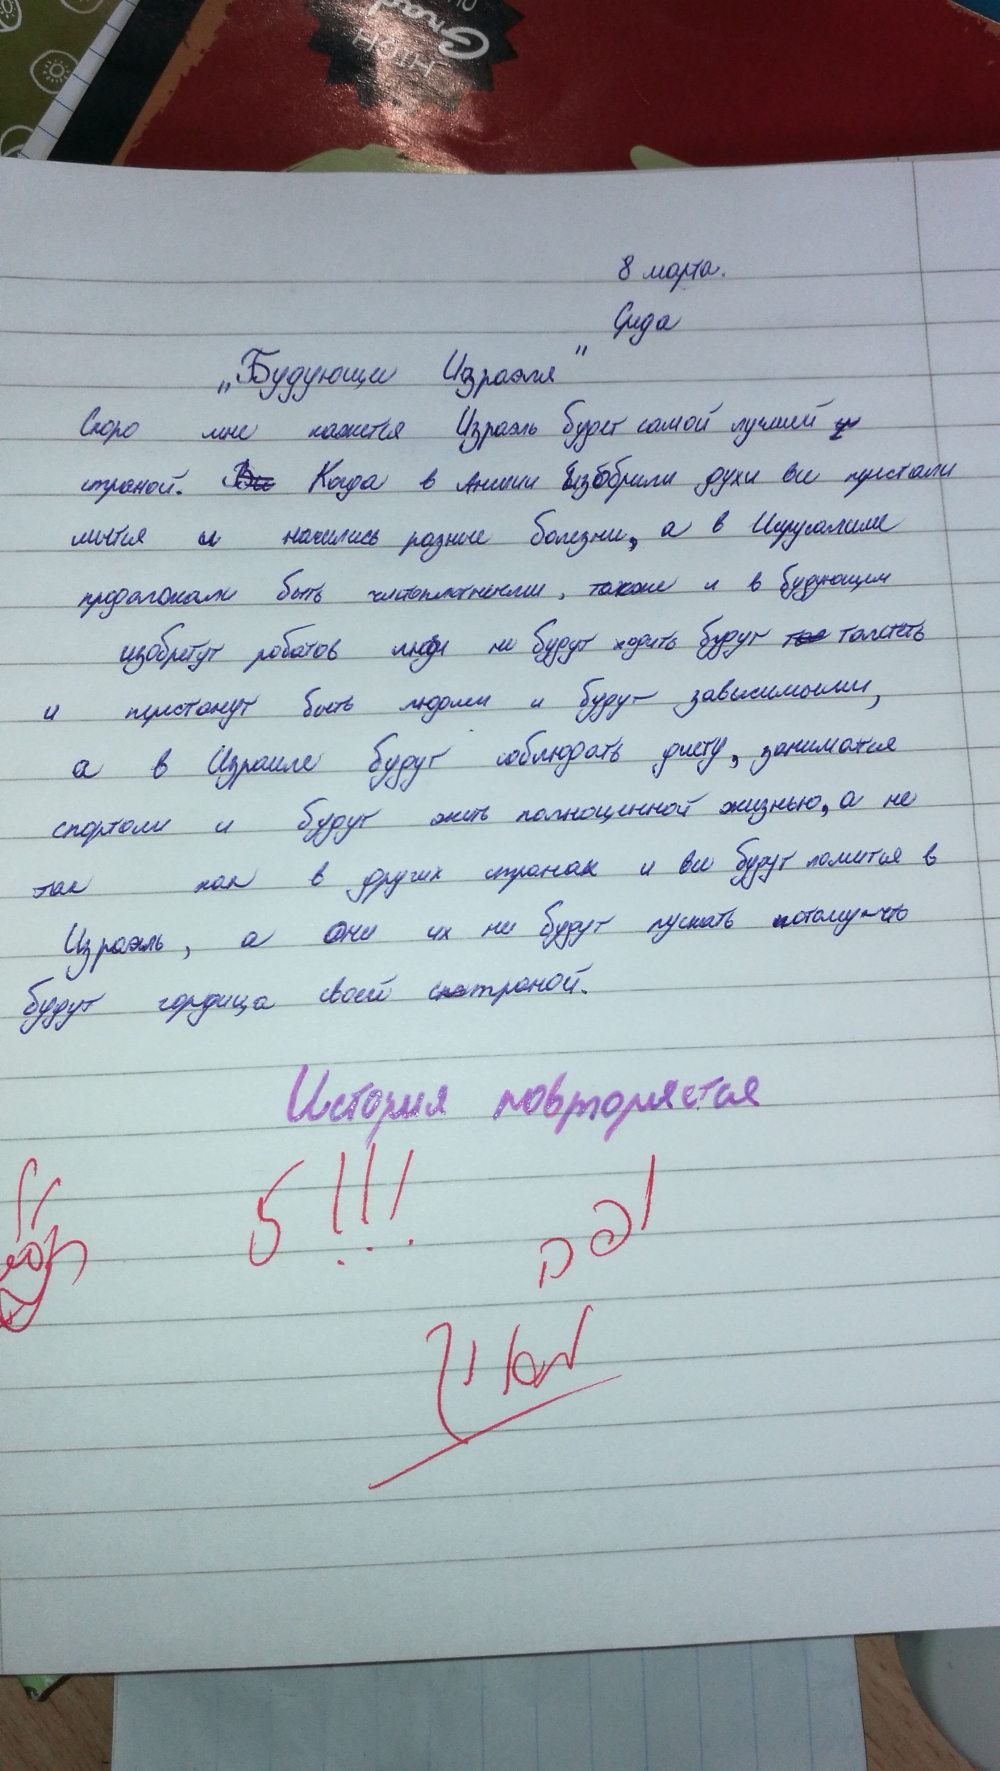 HIGH
Grad
8 марта.
Среда
„Будующи Израэля"
Скоро мне кажется Израэль будет самой лучшей
страной. Когда в Англии изобрили духи все пристали
мытся и начились разные болезни, а в Иирусалиме
продолжали быть чистоплотнеми, также и в будующим
изобретут роботов люди не будут ходить будут толстеть
и пирстонут быть людми и будут зависимыми,
а в Израиле будут соблюдать диету, заниматся
спортом и будут жить полноценной жизнью, а не
так как в других странах и все будут ломится в
Израэль, а они их не будут пускать потому-что
будут гордица своей страной.
История повторяется
5!!!
יפה
מאוד